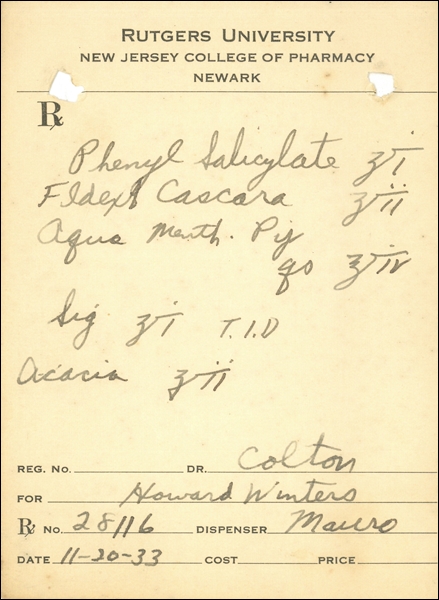 RUTGERS UNIVERSITY
NEW JERSEY COLLEGE OF PHARMACY
NEWARK
℞
Phenyl Salicylate ʒi
Fldext Cascara ʒii
Aqua Menth. Pip
qs ℥iv
Sig ʒi T.I.D
Acacia ʒii
REG. NO. DR. Colton
FOR Howard Winters
℞ NO. 28116 DISPENSER Mauro
DATE 11-20-33 COST PRICE